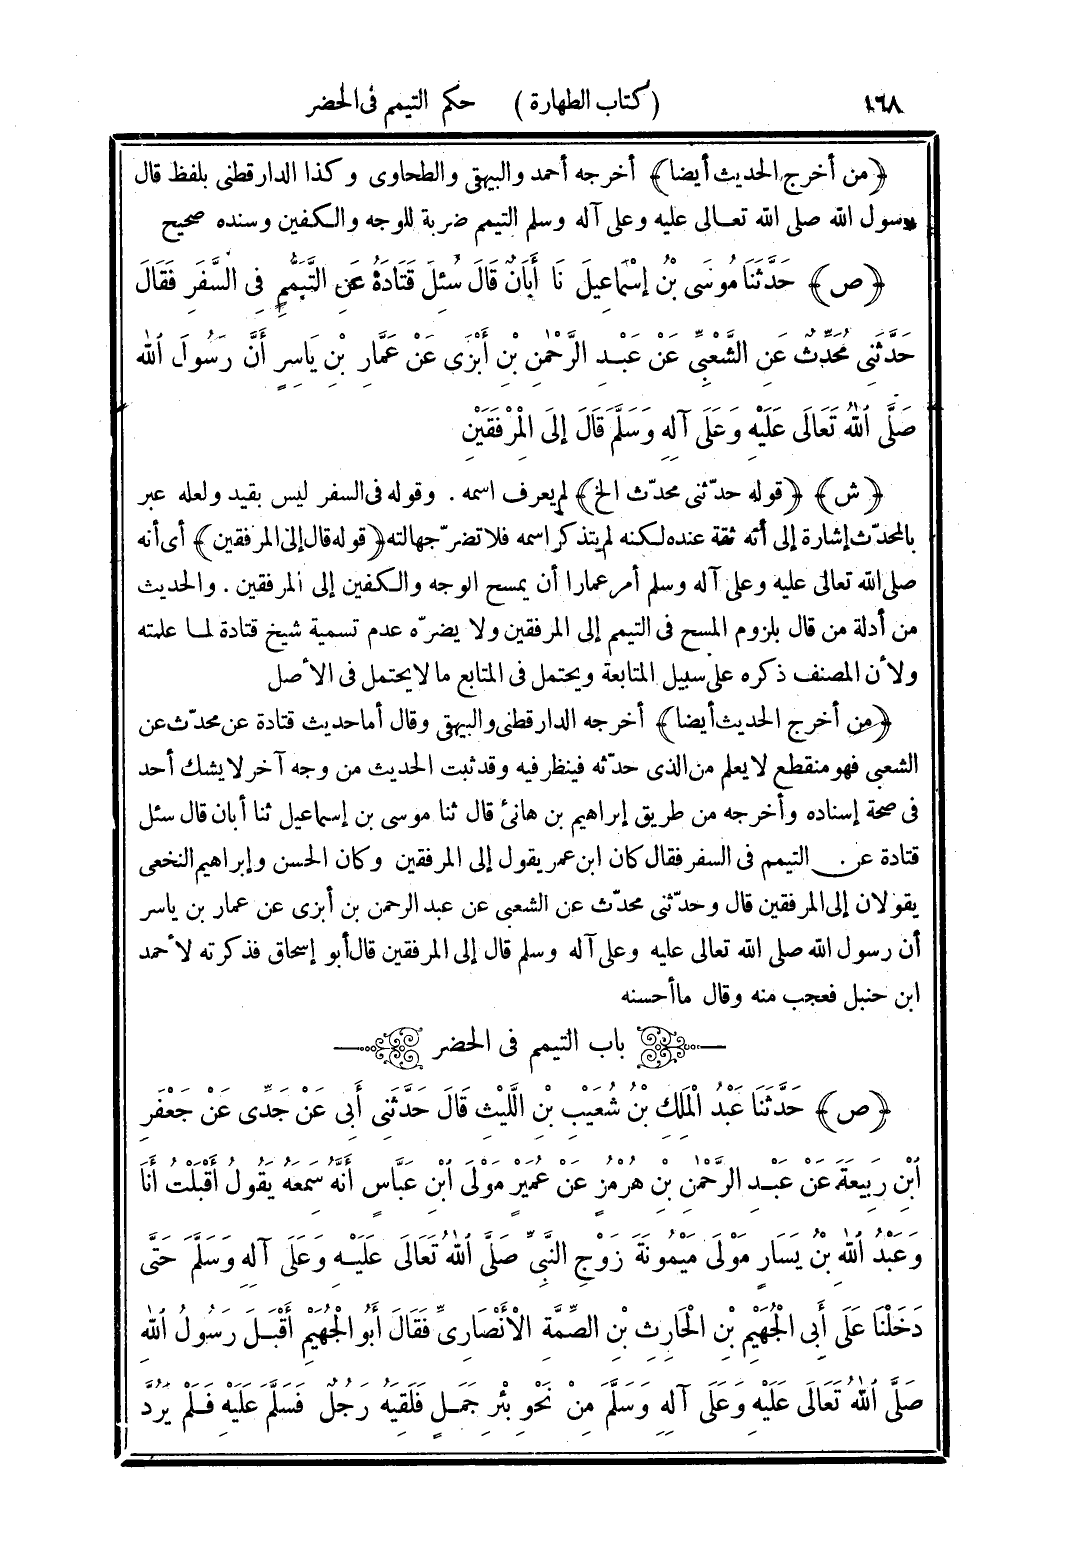 ١٦٨ (كتاب الطهارة) حكم التيمم فى الحضر
﴿من أخرج الحديث أيضا﴾ أخرجه أحمد والبيهقى والطحاوى وكذا الدارقطنى بلفظ قال
رسول الله صلى الله تعالى عليه وعلى آله وسلم التيمم ضربة للوجه والكفين وسنده صحيح
﴿ص﴾ حَدَّثَنَا مُوسَى بْنُ إِسْمَاعِيلَ نَا أَبَانُ قَالَ سُئِلَ قَتَادَةُ عَنِ التَّيَمُّمِ فِى السَّفَرِ فَقَالَ
حَدَّثَنِى مُحَدِّثٌ عَنِ الشَّعْبِىِّ عَنْ عَبْدِ الرَّحْمٰنِ بْنِ أَبْزَى عَنْ عَمَّارِ بْنِ يَاسِرٍ أَنَّ رَسُولَ اللهِ
صَلَّى اللهُ تَعَالَى عَلَيْهِ وَعَلَى آلِهِ وَسَلَّمَ قَالَ إِلَى الْمِرْفَقَيْنِ
﴿ش﴾ ﴿قوله حدّثنى محدّث الخ﴾ لم يعرف اسمه . وقوله فى السفر ليس بقيد ولعله عبر
بالمحدّث إشارة إلى أنه ثقة عنده لكنه لم يتذكر اسمه فلا تضرّ جهالته ﴿قوله قال إلى المرفقين﴾ أى أنه
صلى الله تعالى عليه وعلى آله وسلم أمر عمارا أن يمسح الوجه والكفين إلى المرفقين . والحديث
من أدلة من قال بلزوم المسح فى التيمم إلى المرفقين ولا يضرّه عدم تسمية شيخ قتادة لما علمته
ولأن المصنف ذكره على سبيل المتابعة ويحتمل فى المتابع ما لا يحتمل فى الأصل
﴿من أخرج الحديث أيضا﴾ أخرجه الدارقطنى والبيهقى وقال أما حديث قتادة عن محدّث عن
الشعبى فهو منقطع لا يعلم من الذى حدّثه فينظر فيه وقد ثبت الحديث من وجه آخر لا يشك أحد
فى صحة إسناده وأخرجه من طريق إبراهيم بن هانئ قال ثنا موسى بن إسماعيل ثنا أبان قال سئل
قتادة عن التيمم فى السفر فقال كان ابن عمر يقول إلى المرفقين وكان الحسن وإبراهيم النخعى
يقولان إلى المرفقين قال وحدّثنى محدّث عن الشعبى عن عبد الرحمن بن أبزى عن عمار بن ياسر
أن رسول الله صلى الله تعالى عليه وعلى آله وسلم قال إلى المرفقين قال أبو إسحاق فذكرته لأحمد
ابن حنبل فعجب منه وقال ما أحسنه
باب التيمم فى الحضر
﴿ص﴾ حَدَّثَنَا عَبْدُ الْمَلِكِ بْنُ شُعَيْبِ بْنِ اللَّيْثِ قَالَ حَدَّثَنِى أَبِى عَنْ جَدِّى عَنْ جَعْفَرِ
ابْنِ رَبِيعَةَ عَنْ عَبْدِ الرَّحْمٰنِ بْنِ هُرْمُزٍ عَنْ عُمَيْرٍ مَوْلَى ابْنِ عَبَّاسٍ أَنَّهُ سَمِعَهُ يَقُولُ أَقْبَلْتُ أَنَا
وَعَبْدُ اللهِ بْنُ يَسَارٍ مَوْلَى مَيْمُونَةَ زَوْجِ النَّبِىِّ صَلَّى اللهُ تَعَالَى عَلَيْهِ وَعَلَى آلِهِ وَسَلَّمَ حَتَّى
دَخَلْنَا عَلَى أَبِى الْجُهَيْمِ بْنِ الْحَارِثِ بْنِ الصِّمَّةِ الْأَنْصَارِىِّ فَقَالَ أَبُو الْجُهَيْمِ أَقْبَلَ رَسُولُ اللهِ
صَلَّى اللهُ تَعَالَى عَلَيْهِ وَعَلَى آلِهِ وَسَلَّمَ مِنْ نَحْوِ بِئْرِ جَمَلٍ فَلَقِيَهُ رَجُلٌ فَسَلَّمَ عَلَيْهِ فَلَمْ يَرُدَّ